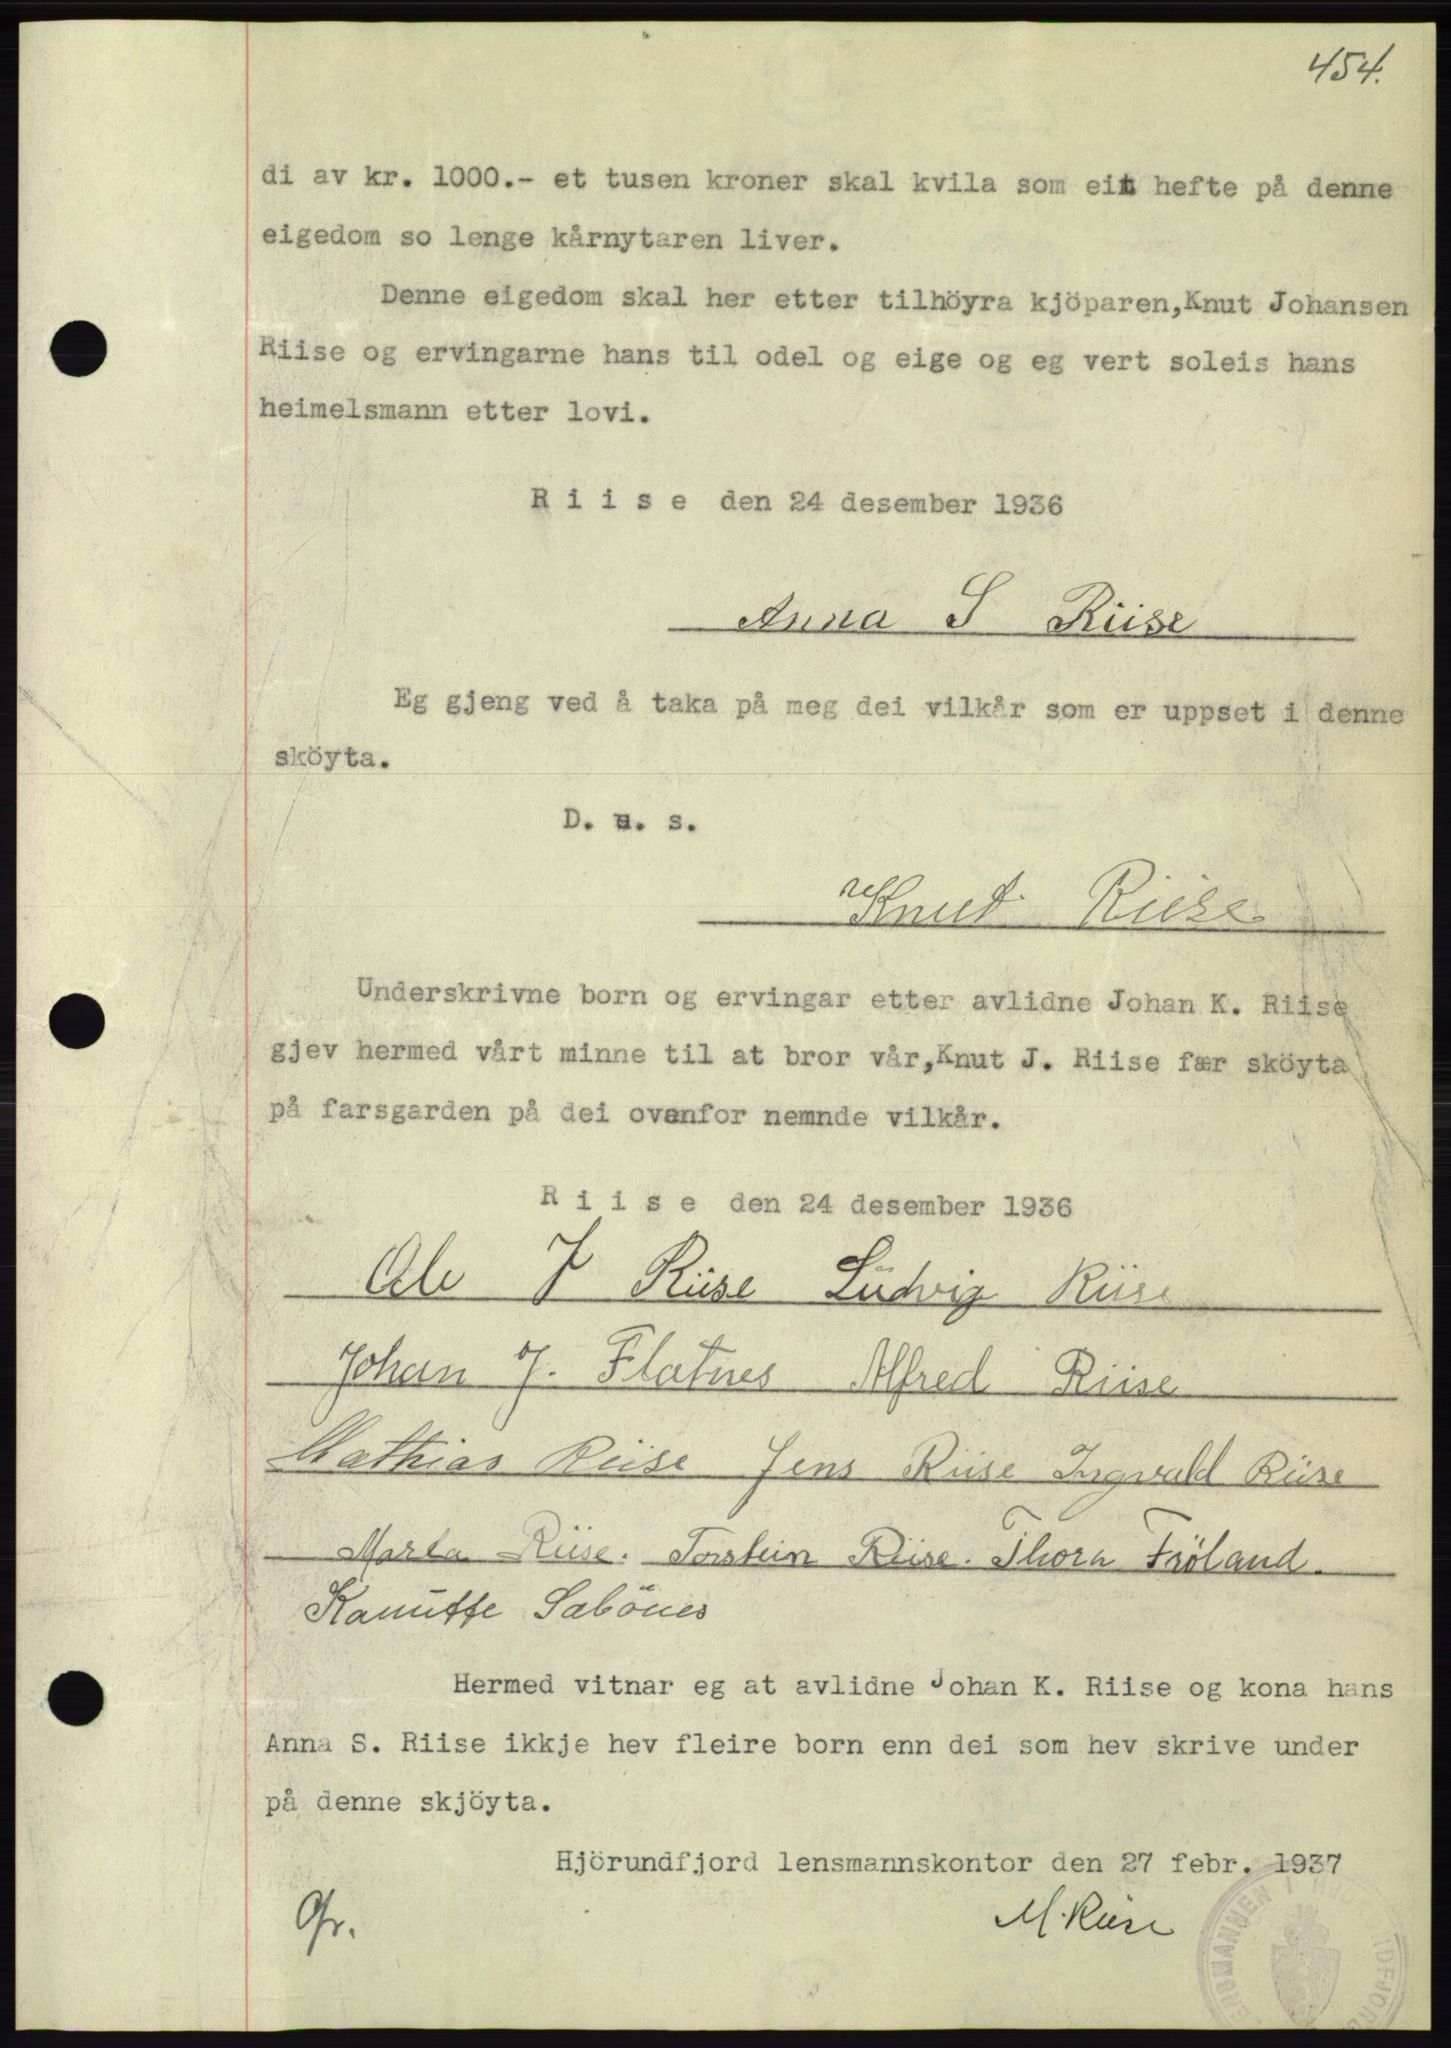 454.
di av kr. 1000.- et tusen kroner skal kvila som eit hefte på denne
eigedom so lenge kårnytaren liver.
Denne eigedom skal her etter tilhöyra kjöparen,Knut Johansen
Riise og ervingarne hans til odel og eige og eg vert soleis hans
heimelsmann etter lovi.
R i i s e den 24 desember 1936
Anna S Riise
Eg gjeng ved å taka på meg dei vilkår som er uppset i denne
sköyta.
D. u. s.
Knut Riise
Underskrivne born og ervingar etter avlidne Johan K. Riise
gjev hermed vårt minne til at bror vår,Knut J. Riise fær sköyta
på farsgarden på dei ovanfor nemnde vilkår.
R i i s e den 24 desember 1936
Ole J Riise Ludvig Riise
Johan J. Flatnes Alfred Riise
Mathias Riise Jens Riise Ingvald Riise
Marta Riise. Torstein Riise. Thora Fröland.
Kanutte Sæbönes
Hermed vitnar eg at avlidne Johan K. Riise og kona hans
Anna S. Riise ikkje hev fleire born enn dei som hev skrive under
på denne skjöyta.
Hjörundfjord lensmannskontor den 27 febr. 1937
M. Riise
Gr.